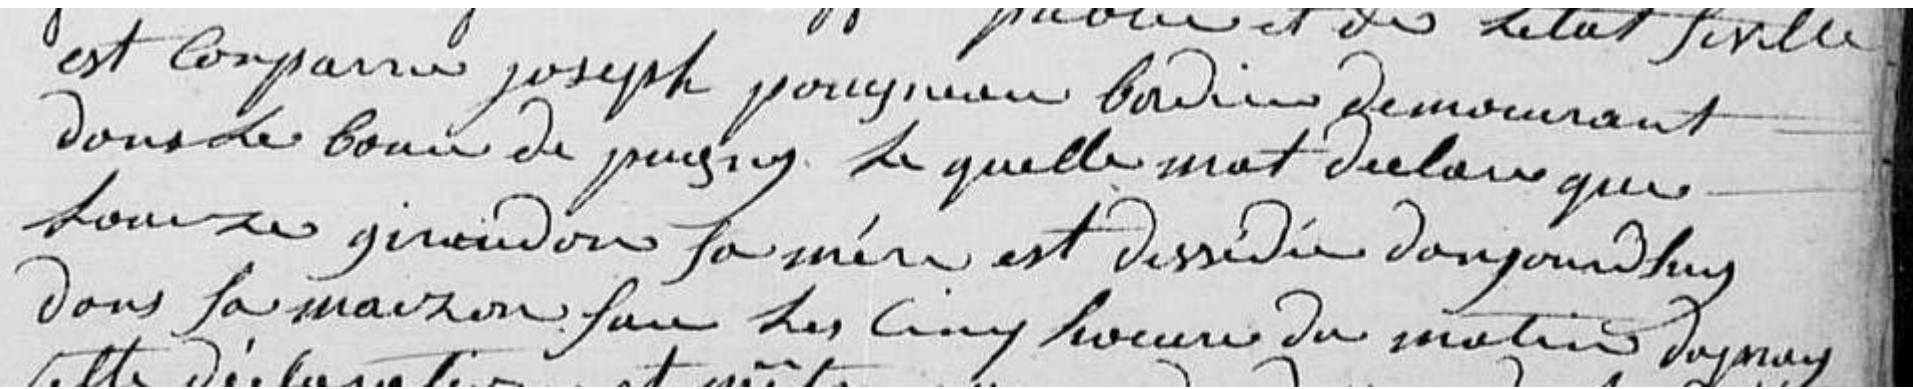 publie et de Letat siville
est Comparue joseph pougneau bordier demeurant
dans Le bour de pugny Le quelle mat declare que
Louize giraudon sa mére est dessédée daujourdhuy
dans sa maizon sur Les Cinq heure du matin dapray
cette déclaration et